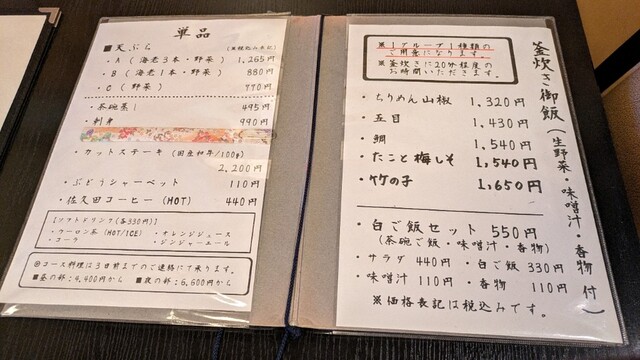 単品
■天ぷら
・A(海老3本・野菜) 1,265円
・B(海老1本・野菜) 880円
・C(野菜) 770円
・茶碗蒸し 495円
・刺身 990円
・カットステーキ(国産和牛/100g)
2,200円
・ぶどうシャーベット 110円
・佐久田コーヒー(HOT) 440円
【ソフトドリンク(各330円)】
・ウーロン茶(HOT/ICE) ・オレンジジュース
・コーラ ・ジンジャーエール
◎コース料理は3日前までのご連絡にて承ります。
■昼の部:4,400円から ■夜の部:6,600円から
釜炊き御飯(生野菜・味噌汁・香物付)
※1グループ1種類の
ご用意になります。
※釜炊きに20分程度の
お時間いただきます。
・ちりめん山椒 1,320円
・五目 1,430円
・鯛 1,540円
・たこと梅しそ 1,540円
・竹の子 1,650円
・白ご飯セット 550円
(茶碗ご飯・味噌汁・香物)
・サラダ 440円 ・白ご飯 330円
・味噌汁 110円 ・香物 110円
※価格表記は税込みです。